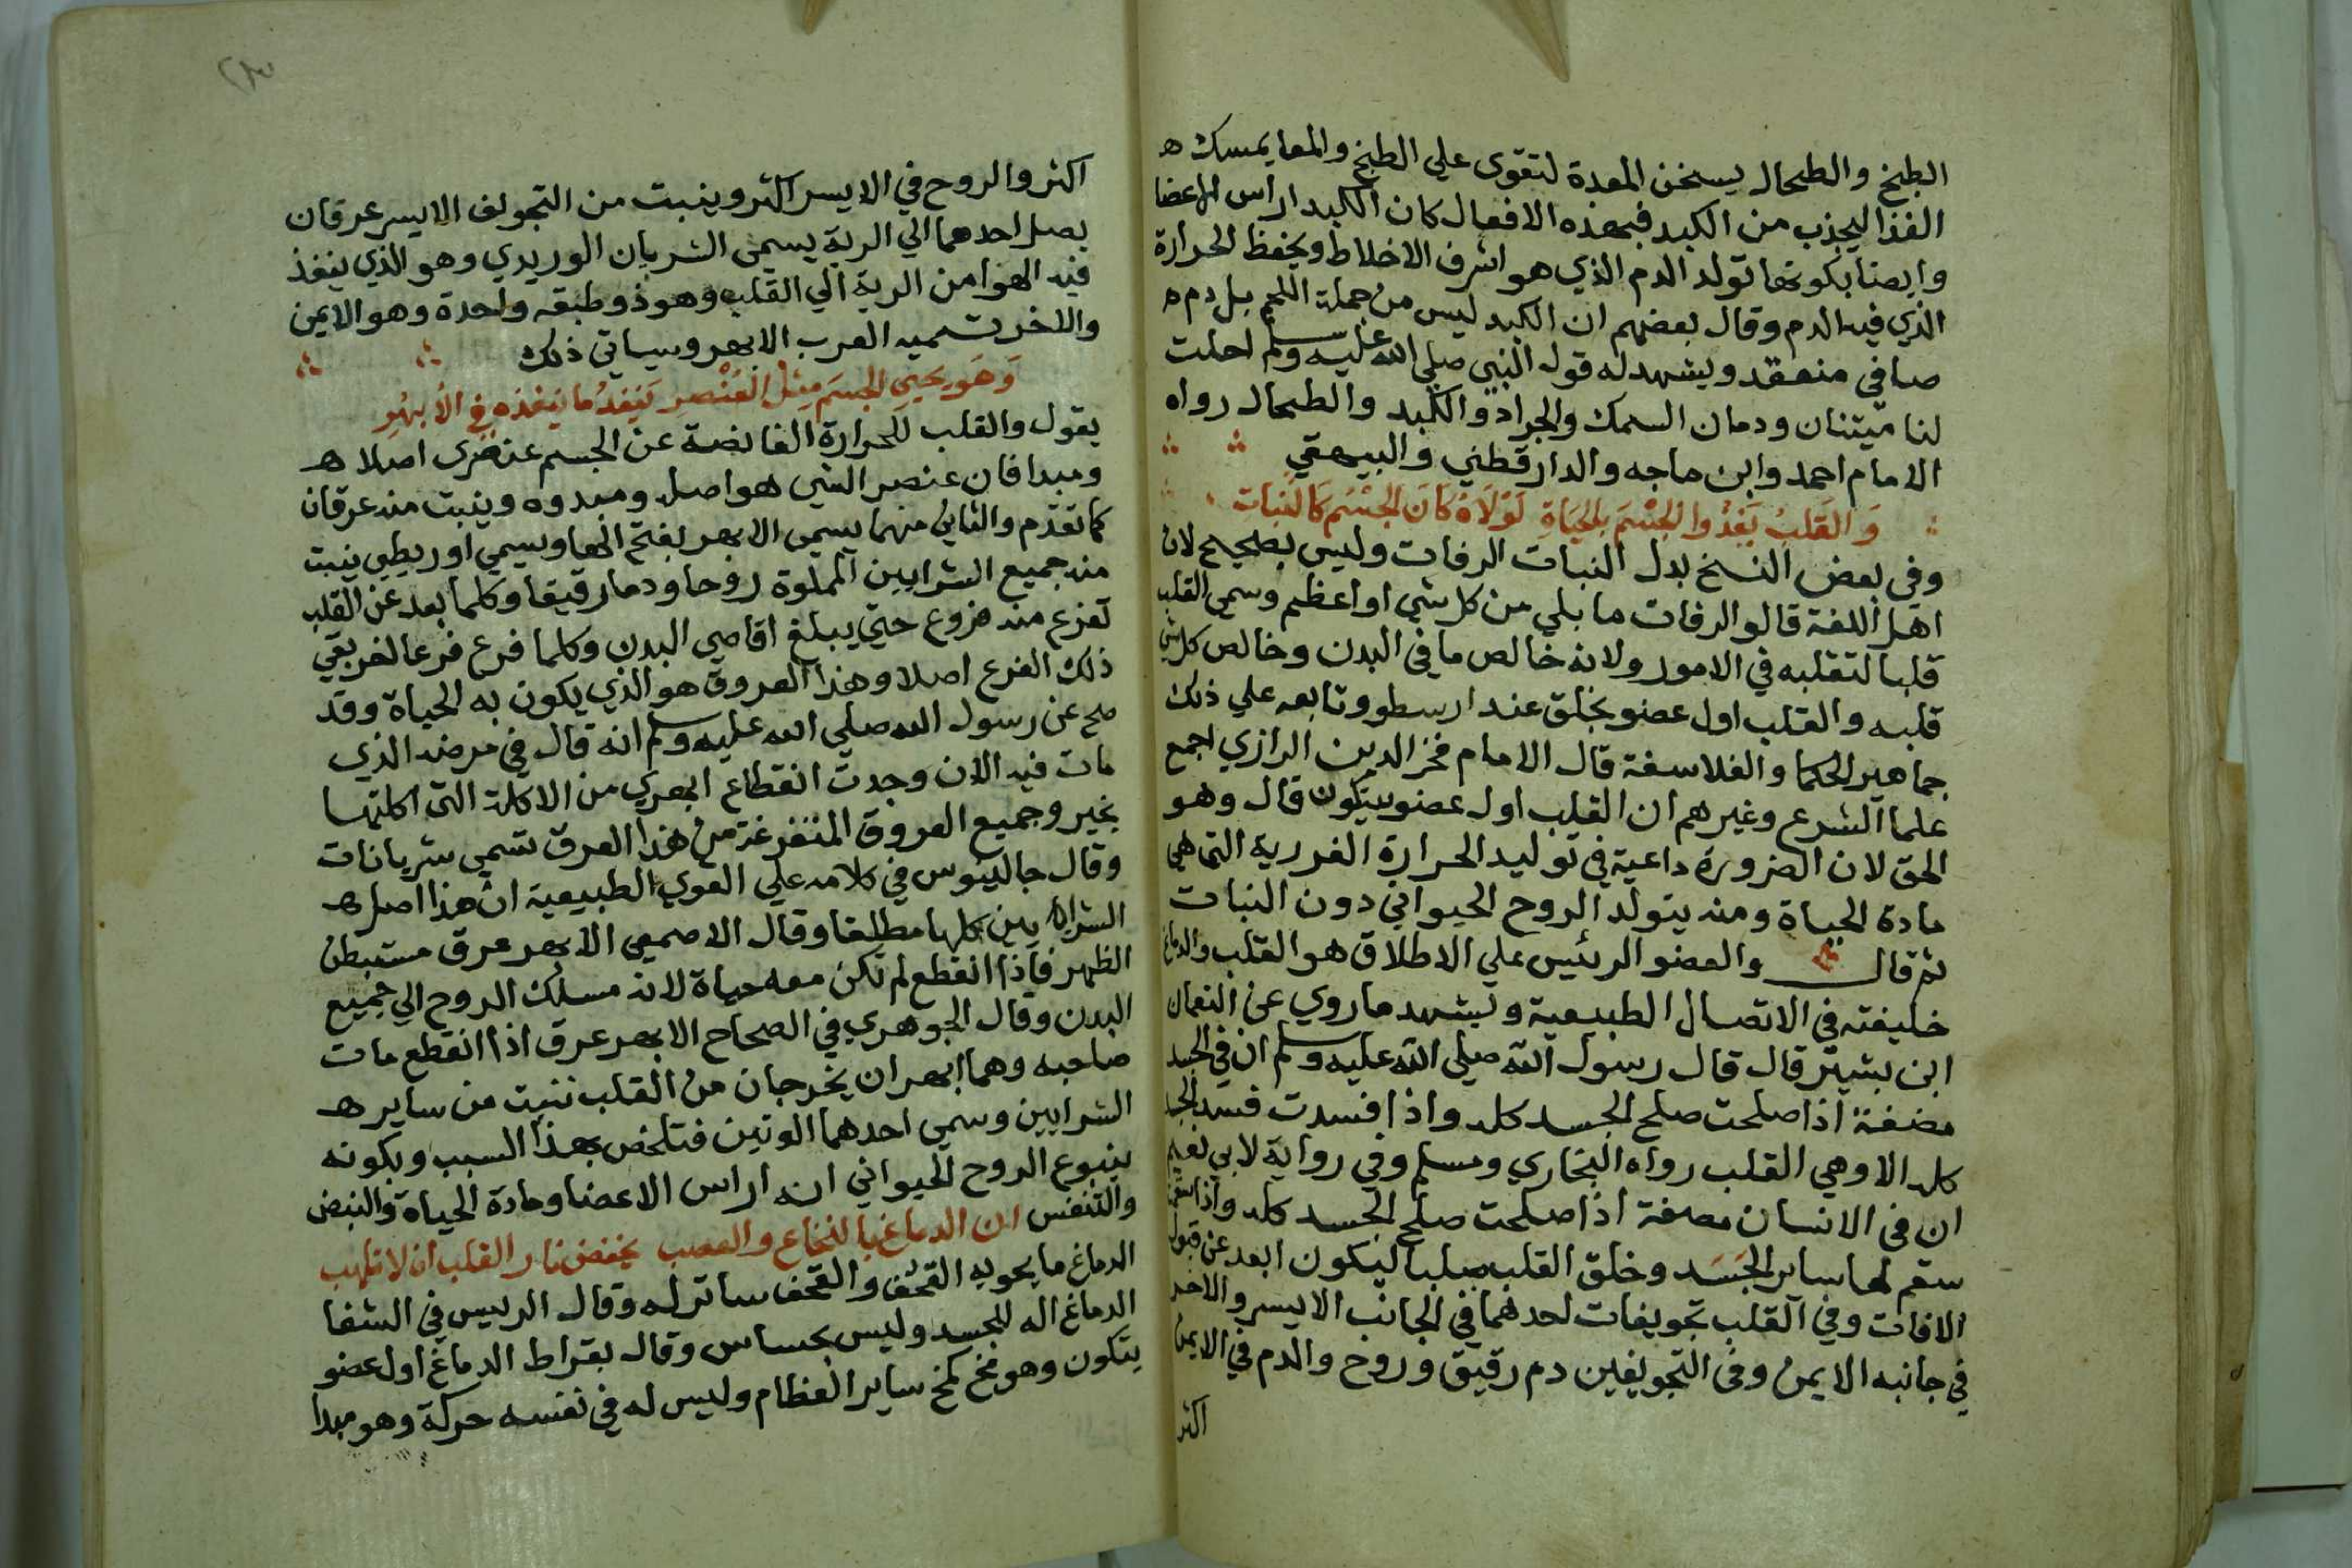 الطبخ والطحال يسخن المعدة لتقوى علي الطبخ والمعا يمسك ه
الغذا ليجذب من الكبد فبهذه الافعال كان الكبد اراس الاعضا
وايضا بكونها تولد الدم الذي هو اشرف الاخلاط ويحفظ الحرارة
الذي فيه الدم وقال بعضهم ان الكبد ليس من جملة اللحم بل دم ه
صافي منعقد ويشهد له قول النبي صلي الله عليه وسلم احلت
لنا ميتتان ودمان السمك والجراد والكبد والطحال رواه
الامام احمد وابن ماجه والدارقطني والبيهقي
وَالقَلبُ يَغذُوا الجِسْمَ بالحَيَاةِ لَوْلَاهُ كَانَ الجِسْمُ كَالنبات
وفي بعض النسخ بدل النبات الرفات وليس بصحيح لان
اهل اللغة قالو الرفات ما بلي من كل شي او اعظم وسمي القلب
قلبا لتقلبه في الامور ولانه خالص ما في البدن وخالص كل شي
قلبه والقلب اول عضو يخلق عند ارسطو وتابعه علي ذلك
جماهير الحكما والفلاسفة قال الامام فخر الدين الرازي اجمع
علما الشرع وغيرهم ان القلب اول عضو يتكون قال وهو
الحق لان الضرورة داعية في توليد الحرارة الغررية التي هي
مادة الحياة ومنه يتولد الروح الحيواني دون النبات
ثم قال والعضو الرئيس علي الاطلاق هو القلب والدماغ
خليفته في الاتصال الطبيعية ويشهد ما روي عن النعمان
ابن بشير قال قال رسول الله صلي الله عليه وسلم ان في الجسد
مضغة اذا صلحت صلح الجسد كله واذا فسدت فسد الجسد
كله الا وهي القلب رواه البخاري ومسلم وفي رواية لابي نعيم
ان في الانسان مضغة اذا صلحت صلح الجسد كله واذا سقمت
سقم لها ساير الجَسَد وخلق القلب صلبا ليكون ابعد عن قبول
الافات وفي القلب تجويفات احدهما في الجانب الايسر والاخر
في جانبه الايمن وفي التجويفين دم رقيق وروح والدم في الايمن
اكثر
اكثر والروح في الايسر اكثر وينبت من التجويف الايسر عرقان
يصل احدهما الي الرية يسمي الشريان الوريدي وهو الذي ينفذ
فيه الهوا من الرية الي القلب وهو ذو طبقه واحدة وهو الايمن
والاخر تسميه العرب الابهر وسياتي ذلك
وَهَو يحيي الجسَم مِثل العُنْصرِ يَنفذُ ما ينفذه في الابْهُرِ
يقول والقلب للحرارة الفايضة عن الجسم عنصرى اصلا ه
ومبدا فان عنصر الشي هو اصله ومبدوه وينبت منه عرقان
كما تقدم والثاني منهما يسمي الابهر بفتح الها ويسمي اوريطي ينبت
منه جميع الشرايين المملوة روحا ودما رقيقا وكلما بعد عن القلب
تفرع منه فروع حتي يبلغ اقاصي البدن وكلما فرع فرعا لفر بقي
ذلك الفرع اصلا وهذا العروق هو الذي يكون به الحياة وقد
صح عن رسول الله صلي الله عليه وسلم انه قال في مرضه الذي
مات فيه الان وجدت انقطاع ابهري من الاكلة التي اكلتها
بخيبر وجميع العروق المتفرغة من هذا العرق تسمي شريانات
وقال جالينوس في كلامه علي القوي الطبيعية ان هذا اصل ه
الشرايين كلها مطلقا وقال الاصمعي الابهر عرق مستبطن
الظهر فاذا انقطع لم تكن معه حياة لانه مسلك الروح الي جميع
البدن وقال الجوهري في الصحاح الابهر عرق اذا انقطع مات
صاحبه وهما ابهران يخرجان من القلب ننبت من ساير ه
الشرايين وسمي احدهما الوتين فتلخص بهذا السبب وبكونه
ينبوع الروح الحيواني انه اراس الاعضا ومادة الحياة والنبض
والتنفس ان الدماغ بالنخاع والعصب يخفض نار القلب ان لا تلهب
الدماغ ما يحويه القحف والقحف ساتر له وقال الرييس في الشفا
الدماغ اله للجسد وليس بحساس وقال بقراط الدماغ اول عضو
يتكون وهو مخ كمخ ساير العظام وليس له في نفسه حركة وهو مبدا